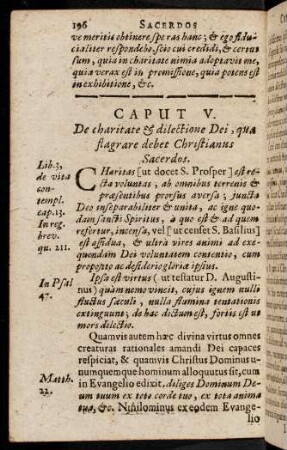 196 SACERDOS
ve meritis obtinere spe ras hanc; & ego fidu-
cialiter respondebo, scio cui credidi, & certus
sum, quia in charitate nimia adoptavit me,
quia verax est in promissione, quia potens est
in exhibitione, &c.
CAPUT V.
De charitate & dilectione Dei, qua
flagrare debet Christianus
Sacerdos.
Lib. 3,
de vita
con-
templ.
cap. 13.
In reg.
brev.
qu. 211.
CHaritas [ut docet S. Prosper] est re-
cta voluntas, ab omnibus terrenis &
præsentibus prorsus aversa; juncta
Deo inseparabiliter & unita, ac igne quo-
dam sancti Spiritus, à quo est & ad quem
refertur, incensa, vel [ut censet S. Basilius]
est assidua, & ultrà vires animi ad exe-
quendam Dei voluntatem contentio, cum
proposito ac desiderio gloriæ ipsius.
In Psal
47.
Ipsa est virtus [ut testatur D. Augusti-
nus] quam nemo vincit, cujus ignem nulli
fluctus sæculi, nulla flumina tentationis
extinguunt; de hac dictum est, fortis est ut
mors dilectio.
Quamvis autem hæc divina virtus omnes
creaturas rationales amandi Dei capaces
respiciat, & quamvis Christus Dominus u-
numquemque hominum alloquutus sit, cum
Matth.
22.
in Evangelio edixit, diliges Dominum De-
um tuum ex toto corde tuo, ex tota anima
tua, &c. Nihilominus ex eodem Evange-
lio